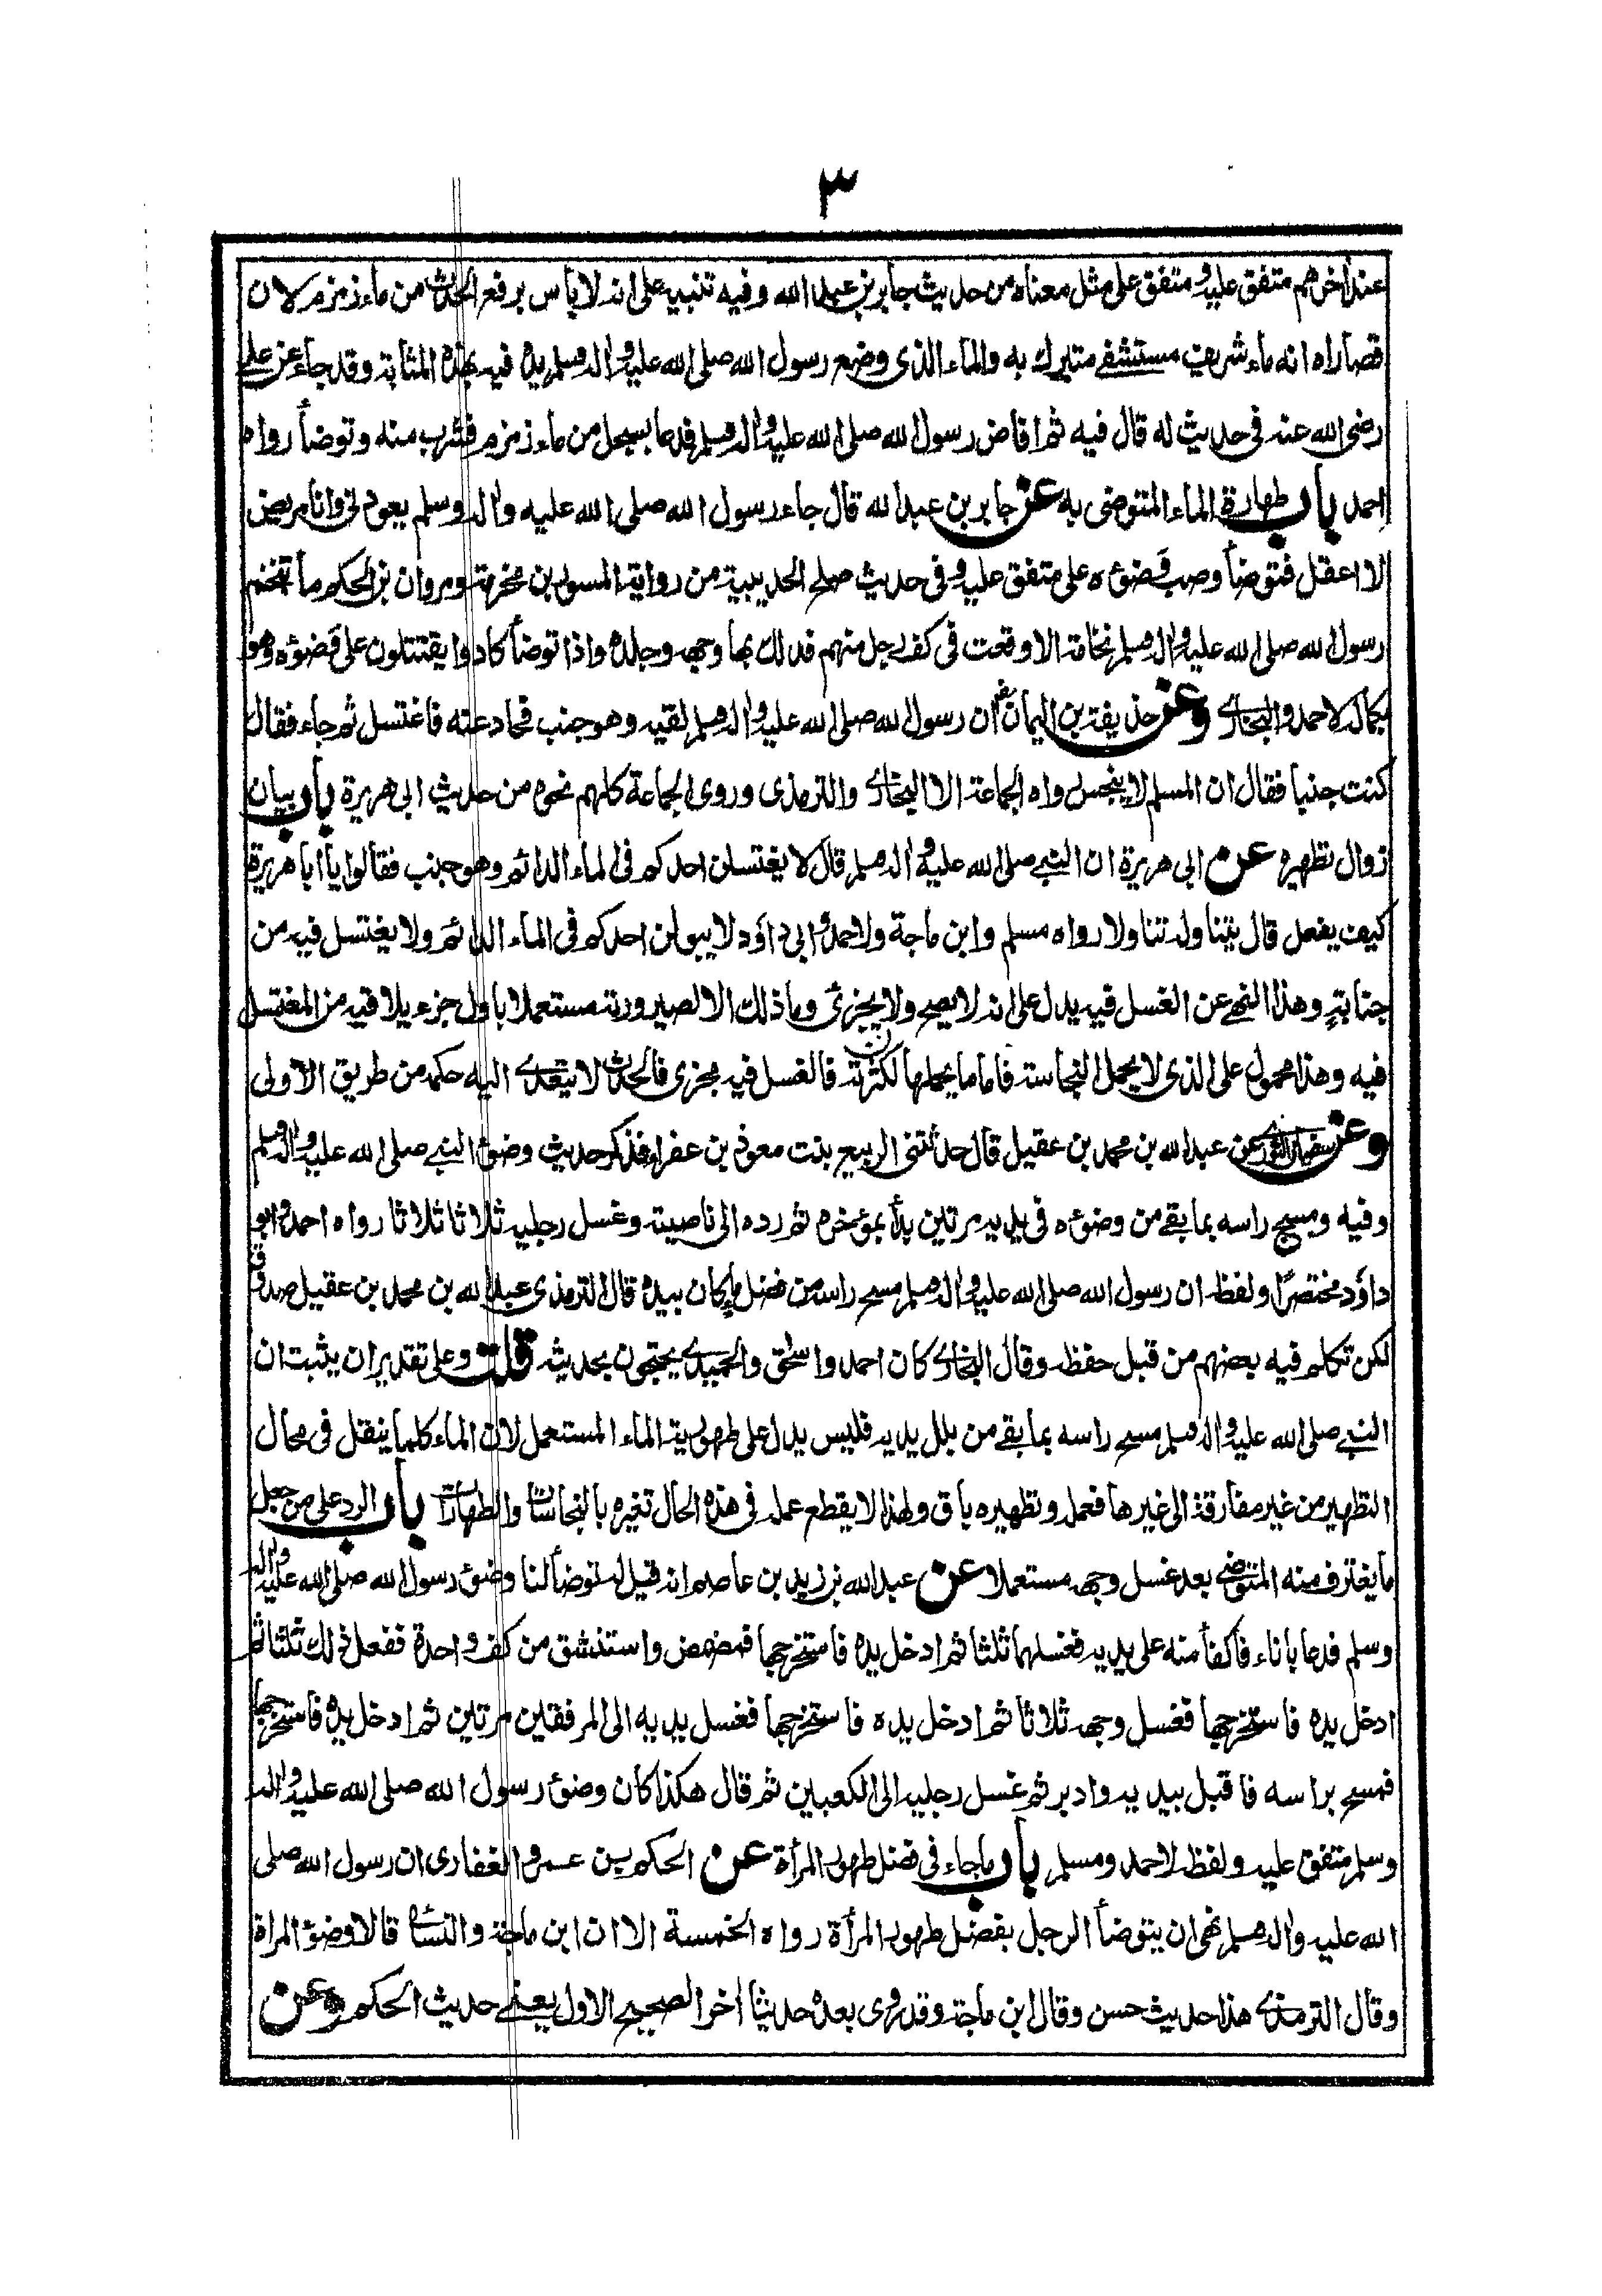 ٣
عند اخرهم متفق عليه ومتفق على مثل معناه من حديث جابر بن عبد الله وفيه تنبيه على انه لا باس برفع الحدث من ماء زمزم لان
قصاراه انه ماء شريف مستشفى متبرك به والماء الذى وضع رسول الله صلى الله عليه واله وسلم يده فيه بهذه المثابة وقد جاء عن على
رضى الله عنه فى حديث له قال فيه ثم افاض رسول الله صلى الله عليه واله وسلم فدعا بسجل من ماء زمزم فشرب منه وتوضأ رواه
احمد باب طهارة الماء المتوضى به عن جابر بن عبد الله قال جاء رسول الله صلى الله عليه واله وسلم يعودنى وانا مريض
لا اعقل فتوضأ وصب وضوءه على متفق عليه وفى حديث صلح الحديبية من رواية المسور بن مخرمة ومروان بن الحكم ما تنخم
رسول الله صلى الله عليه واله وسلم نخامة الا وقعت فى كف رجل منهم فدلك بها وجهه وجلده واذا توضأ كادوا يقتتلون على وضوءه وهو
بكماله لاحمد والبخارى وعن حذيفة بن اليمان ان رسول الله صلى الله عليه واله وسلم لقيه وهو جنب فحاد عنه فاغتسل ثم جاء فقال
كنت جنبا فقال ان المسلم لا ينجس رواه الجماعة الا البخارى والترمذى وروى الجماعة كلهم نحوه من حديث ابى هريرة باب بيان
زوال تطهيره عن ابى هريرة ان النبى صلى الله عليه واله وسلم قال لا يغتسلن احدكم فى الماء الدائم وهو جنب فقالوا يا ابا هريرة
كيف يفعل قال يتناوله تناولا رواه مسلم وابن ماجة ولاحمد وابى داؤد لا يبولن احدكم فى الماء الدائم ولا يغتسل فيه من
جنابته وهذا النهى عن الغسل فيه يدل على انه لا يصح ولا يجزئ وما ذلك الا لصيرورته مستعملا باول جزء يلاقيه من المغتسل
فيه وهذا محمول على الذى لا يحمل النجاسة فاما ما يحملها لكثرته فالغسل فيه مجزى فالحدث لا يتعدى اليه حكمه من طريق الاولى
وعن سفيان الثورى عن عبد الله بن محمد بن عقيل قال حدثتنى الربيع بنت معوذ بن عفراء فذكر حديث وضوء النبى صلى الله عليه واله وسلم
وفيه ومسح راسه بما بقى من وضوءه فى يديه مرتين بدأ بمؤخره ثم رده الى ناصيته وغسل رجليه ثلاثا ثلاثا رواه احمد وابو
داؤد مختصرًا ولفظه ان رسول الله صلى الله عليه واله وسلم مسح راسه من فضل ماء كان بيده قال الترمذى عبد الله بن محمد بن عقيل صدوق
لكن تكلم فيه بعضهم من قبل حفظه وقال البخارى كان احمد واسحق والحميدى يحتجون بحديثه قلت وعلى تقدير ان يثبت ان
النبى صلى الله عليه واله وسلم مسح راسه بما بقى من بلل يديه فليس يدل على طهورية الماء المستعمل لان الماء كلما ينقل فى محال
التطهير من غير مفارقة الى غيرها فعمله وتطهيره باق ولهذا لا يقطع عمله فى هذه الحال تغيره بالنجاسات والطهارات باب الرد على من جعل
ما يغترف منه المتوضئ بعد غسل وجهه مستعملا عن عبد الله بن زيد بن عاصم انه قيل له توضأ لنا وضوء رسول الله صلى الله عليه واله
وسلم فدعا باناء فاكفأ منه على يديه فغسلهما ثلثا ثم ادخل يده فاستخرجها فمضمض واستنشق من كف واحدة ففعل ذلك ثلثا ثم
ادخل يده فاستخرجها فغسل وجهه ثلاثا ثم ادخل يده فاستخرجها فغسل يديه الى المرفقين مرتين ثم ادخل يده فاستخرجها
فمسح براسه فاقبل بيديه وادبر ثم غسل رجليه الى الكعبين ثم قال هكذا كان وضوء رسول الله صلى الله عليه واله
وسلم متفق عليه ولفظه لاحمد ومسلم باب ما جاء فى فضل طهور المرأة عن الحكم بن عمرو الغفارى ان رسول الله صلى
الله عليه واله وسلم نهى ان يتوضأ الرجل بفضل طهور المرأة رواه الخمسة الا ان ابن ماجة والنسائى قالا وضوء المراة
وقال الترمذى هذا حديث حسن وقال ابن ماجة وقد روى بعده حديثا اخر الصحيح الاول يعنى حديث الحكم وعن